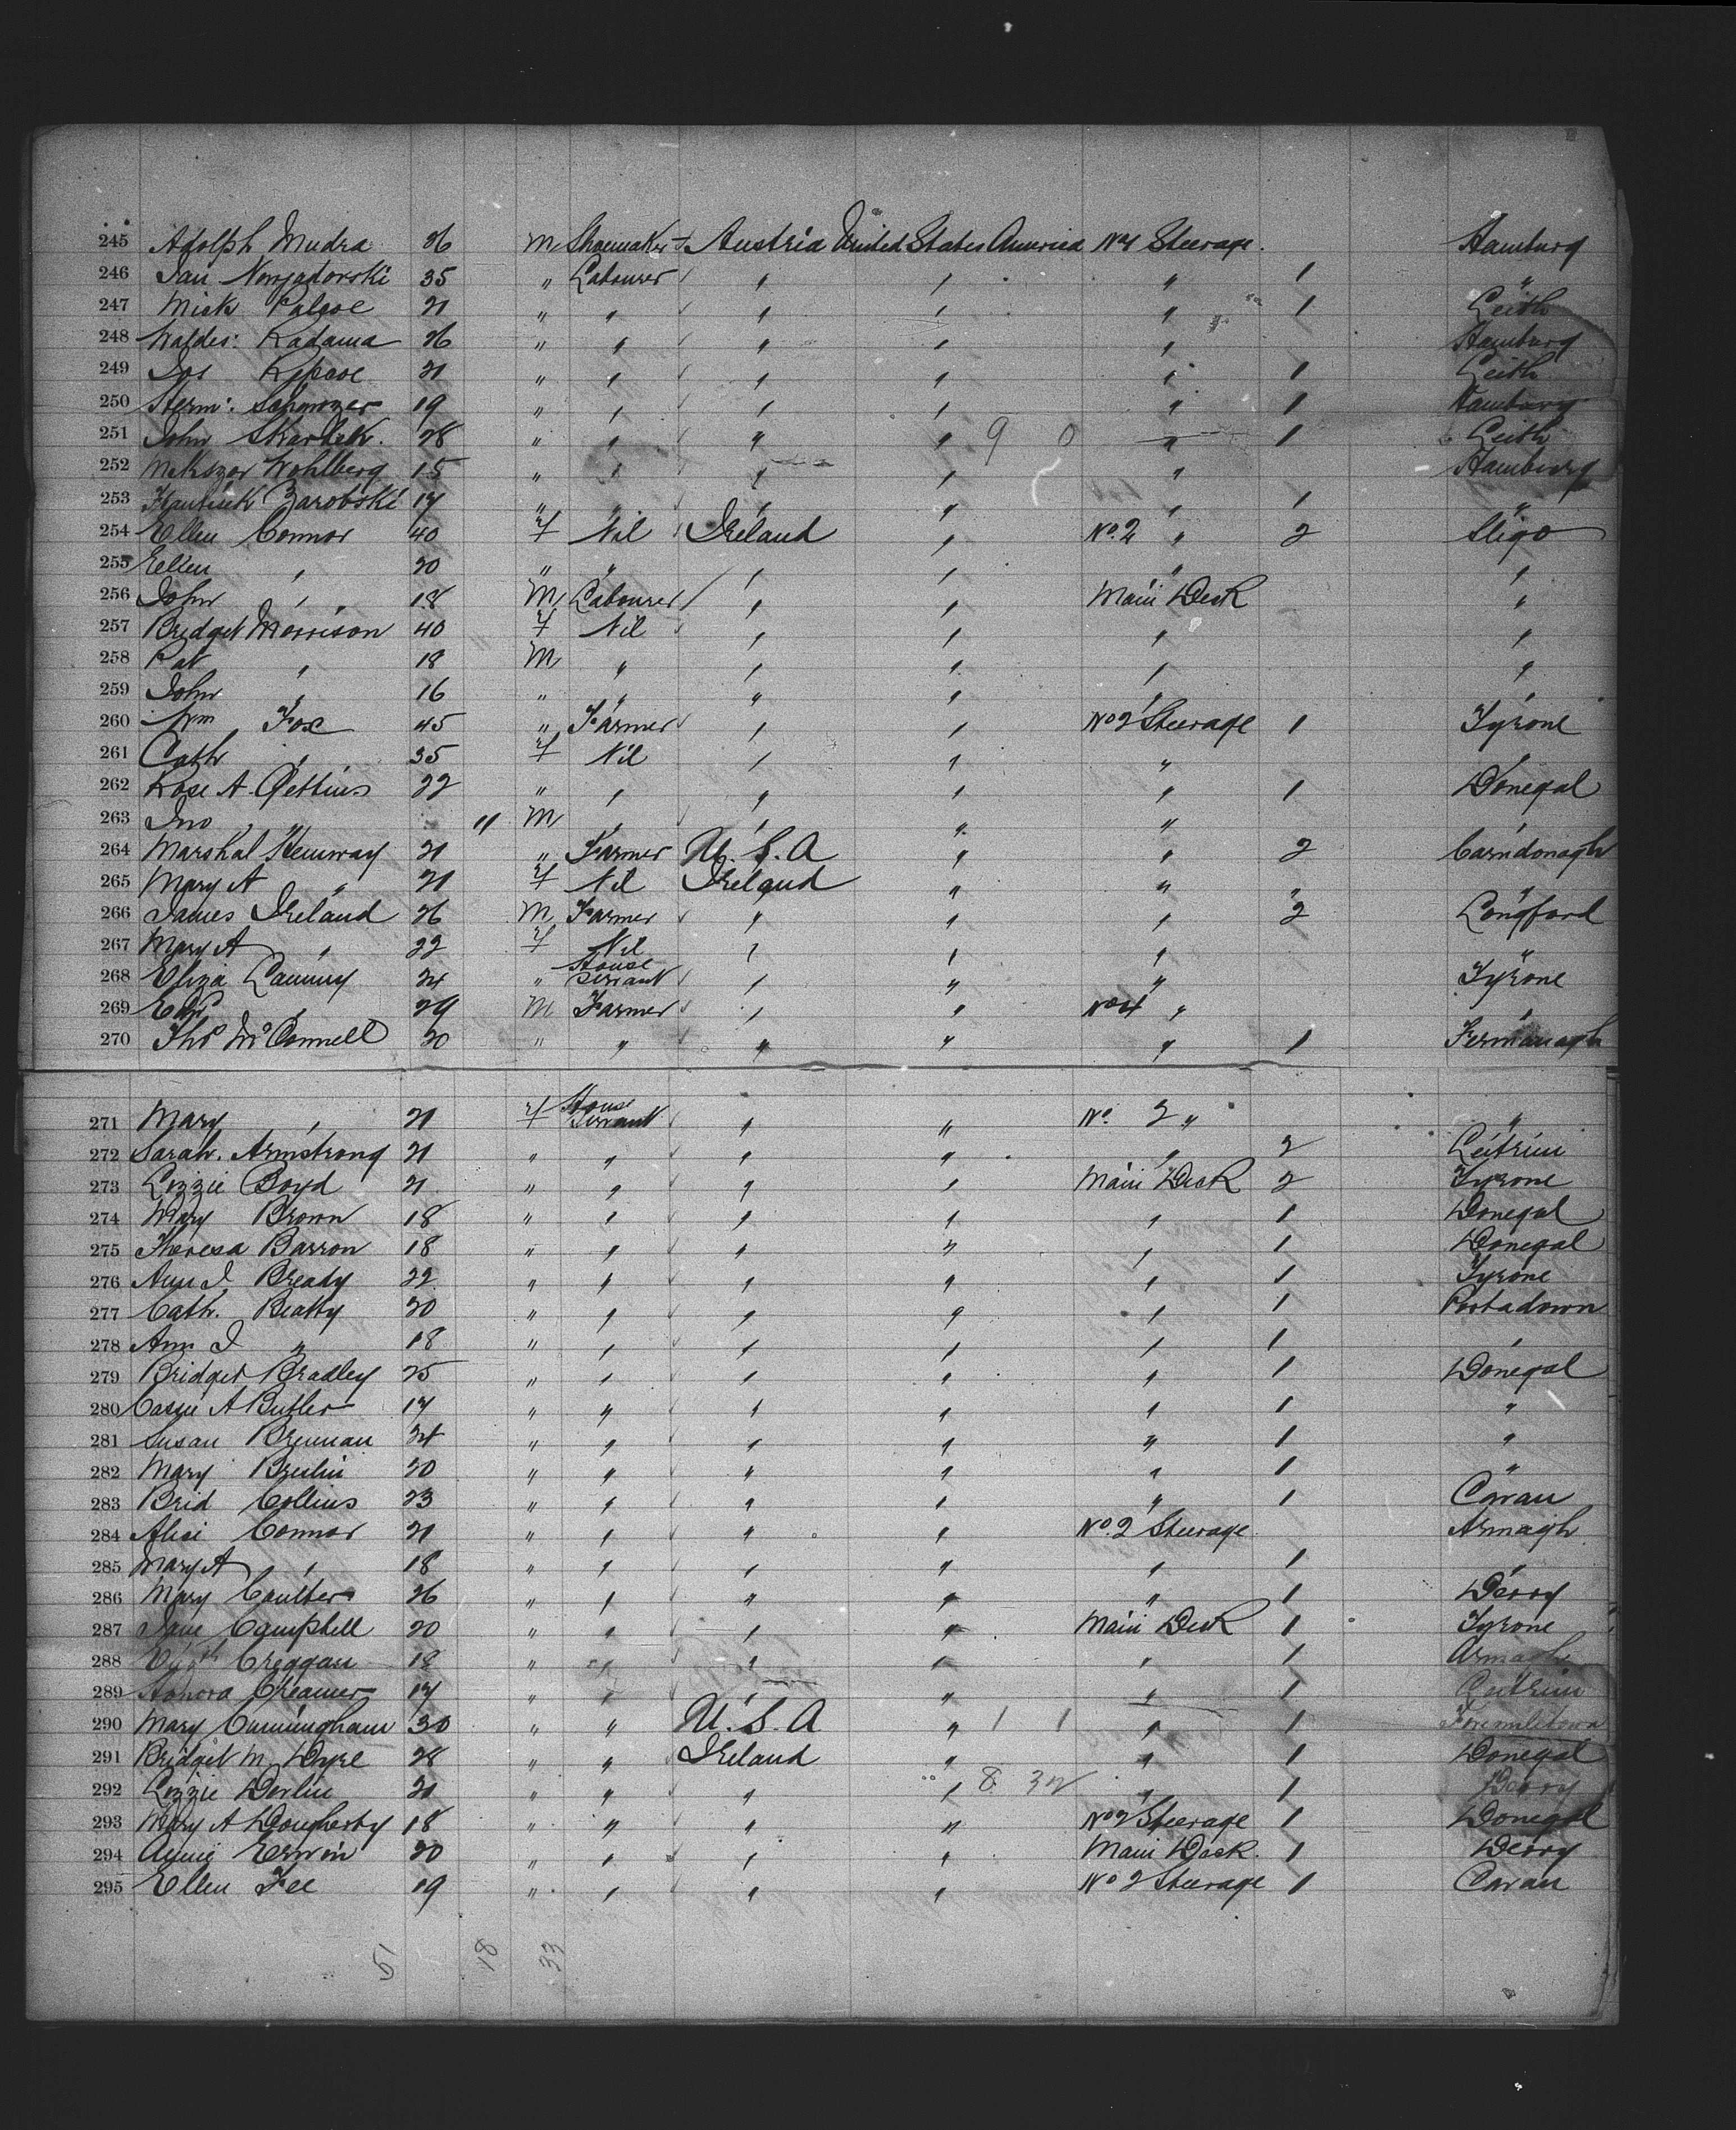 245 Adolph Mudra 26 M Shoemaker Austria United States America No 4 Steerage. Hamburg
246 Jan 35 " Labourer " " " 1 "
247 Mick 21 " " " " " 1 Leith
248 Waldis: Radama 26 " " " " " Hamburg
249 Jos 21 " " " " " 1 Leith
250 Herm: 19 " " " " " 1 Hamburg
251 John Skarbek. 28 " " " " 9 0 " 1 Leith
252 Wohlberg 15 " " " " " Hamburg
253 Zarobski 17 " " " " " 1 "
254 Ellen Connor 40 f Nil Ireland " No. 2 " 2 Sligo
255 Ellen " 20 " " " " " "
256 John " 18 M Labourer " " Main Deck "
257 Bridget Morrison 40 f Nil " " " "
258 Pat " 18 M " " " " "
259 John " 16 " " " " " "
260 Wm Fox 45 " Farmer " " No 2 Steerage 1 Tyrone
261 Cath " 35 f Nil " " " "
262 Rose A. Gettins 22 " " " " " 1 Donegal
263 Jno " 11 M " " " " "
264 Marshal Hemway 21 " Farmer U. S. A " " 2 Carndonagh
265 Mary A " 21 f Nil Ireland " " " "
266 James Ireland 26 M Farmer " " " 2 Longford
267 Mary A " 22 f Nil " " " "
268 Eliza Lammy 24 " House Servant " " " Tyrone
269 Edwd " 29 M Farmer " " No 4 " "
270 Thos McConnell 20 " " " " " 1 Fermanagh
271 Mary " 21 f House Servant " " No. 2 " "
272 Sarah. Armstrong 21 " " " " " 2 Leitrim
273 Lizzie Boyd 21 " " " " Main Deck 2 Tyrone
274 Mary Brown 18 " " " " " 1 Donegal
275 Theresa Barron 18 " " " " " 1 Donegal
276 Ann J Bready 22 " " " " " 1 Tyrone
277 Cath. Beatty 20 " " " " " 1 Portadown
278 Ann J " 18 " " " " " 1 "
279 Bridget Bradley 25 " " " " " 1 Donegal
280 Cassie A Butler 17 " " " " " 1 "
281 Susan Brennan 24 " " " " " 1 "
282 Mary Breslin 20 " " " " " 1 "
283 Brid Collins 23 " " " " " 1 Cavan
284 Alice Connor 21 " " " " No. 2 Steerage Armagh
285 Mary A " 18 " " " " " 1 "
286 Mary Coulter 26 " " " " " 1 Derry
287 Jane Campbell 20 " " " " Main Deck 1 Tyrone
288 Creggan 18 " " " " " 1 Armagh
289 Honora Creamer 17 " " " " " 1 Leitrim
290 Mary Cunningham 30 " " U. S. A " 1 1 " 1
291 Bridget M Dyre 28 " " Ireland " " 1 Donegal
292 Lizzie Devlin 21 " " " " 8 32 " 1 Derry
293 Mary A Dougherty 18 " " " " No 2 Steerage 1 Donegal
294 Annie Erwin 20 " " " " Main Deck. 1 Derry
295 Ellen Fee 19 " " " " No 2 Steerage 1 Cavan
51 18 33